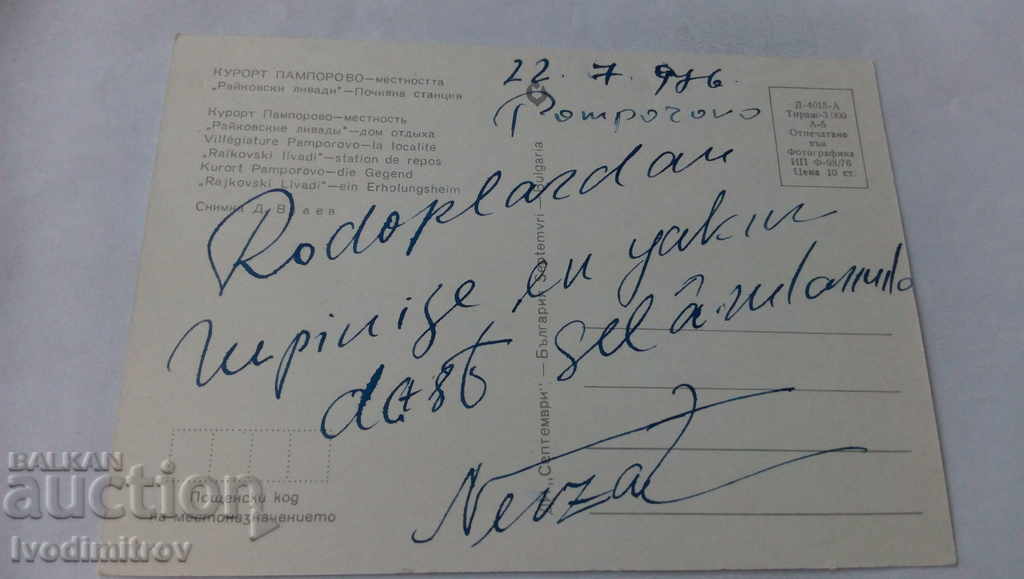 КУРОРТ ПАМПОРОВО—местността
„Райковски ливади"—Почивна станция
Курорт Пампорово—местность
„Райковские ливады"—дом отдыха
Villégiature Pamporovo—la localité
„Raïkovski livadi"—station de repos
Kurort Pamporovo—die Gegend
„Rajkovski Livadi"—ein Erholungsheim
Снимка Д.
22. 7. 976.
Pomporovo
Д-4015-А
А-6
Отпечатано
във
Фотографика
ИП Ф-98/76
Цена 10 ст.
Rodoplardan
hepinize en yakın
dost selâmlarımla
Nevzat
„Септември" — България Septemvri — Bulgaria
Пощенски код
на местоназначението
BALKAN
auction
Ivodimitrov